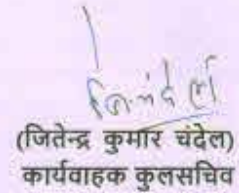 (जितेन्द्र कुमार चंदेल)
कार्यवाहक कुलसचिव